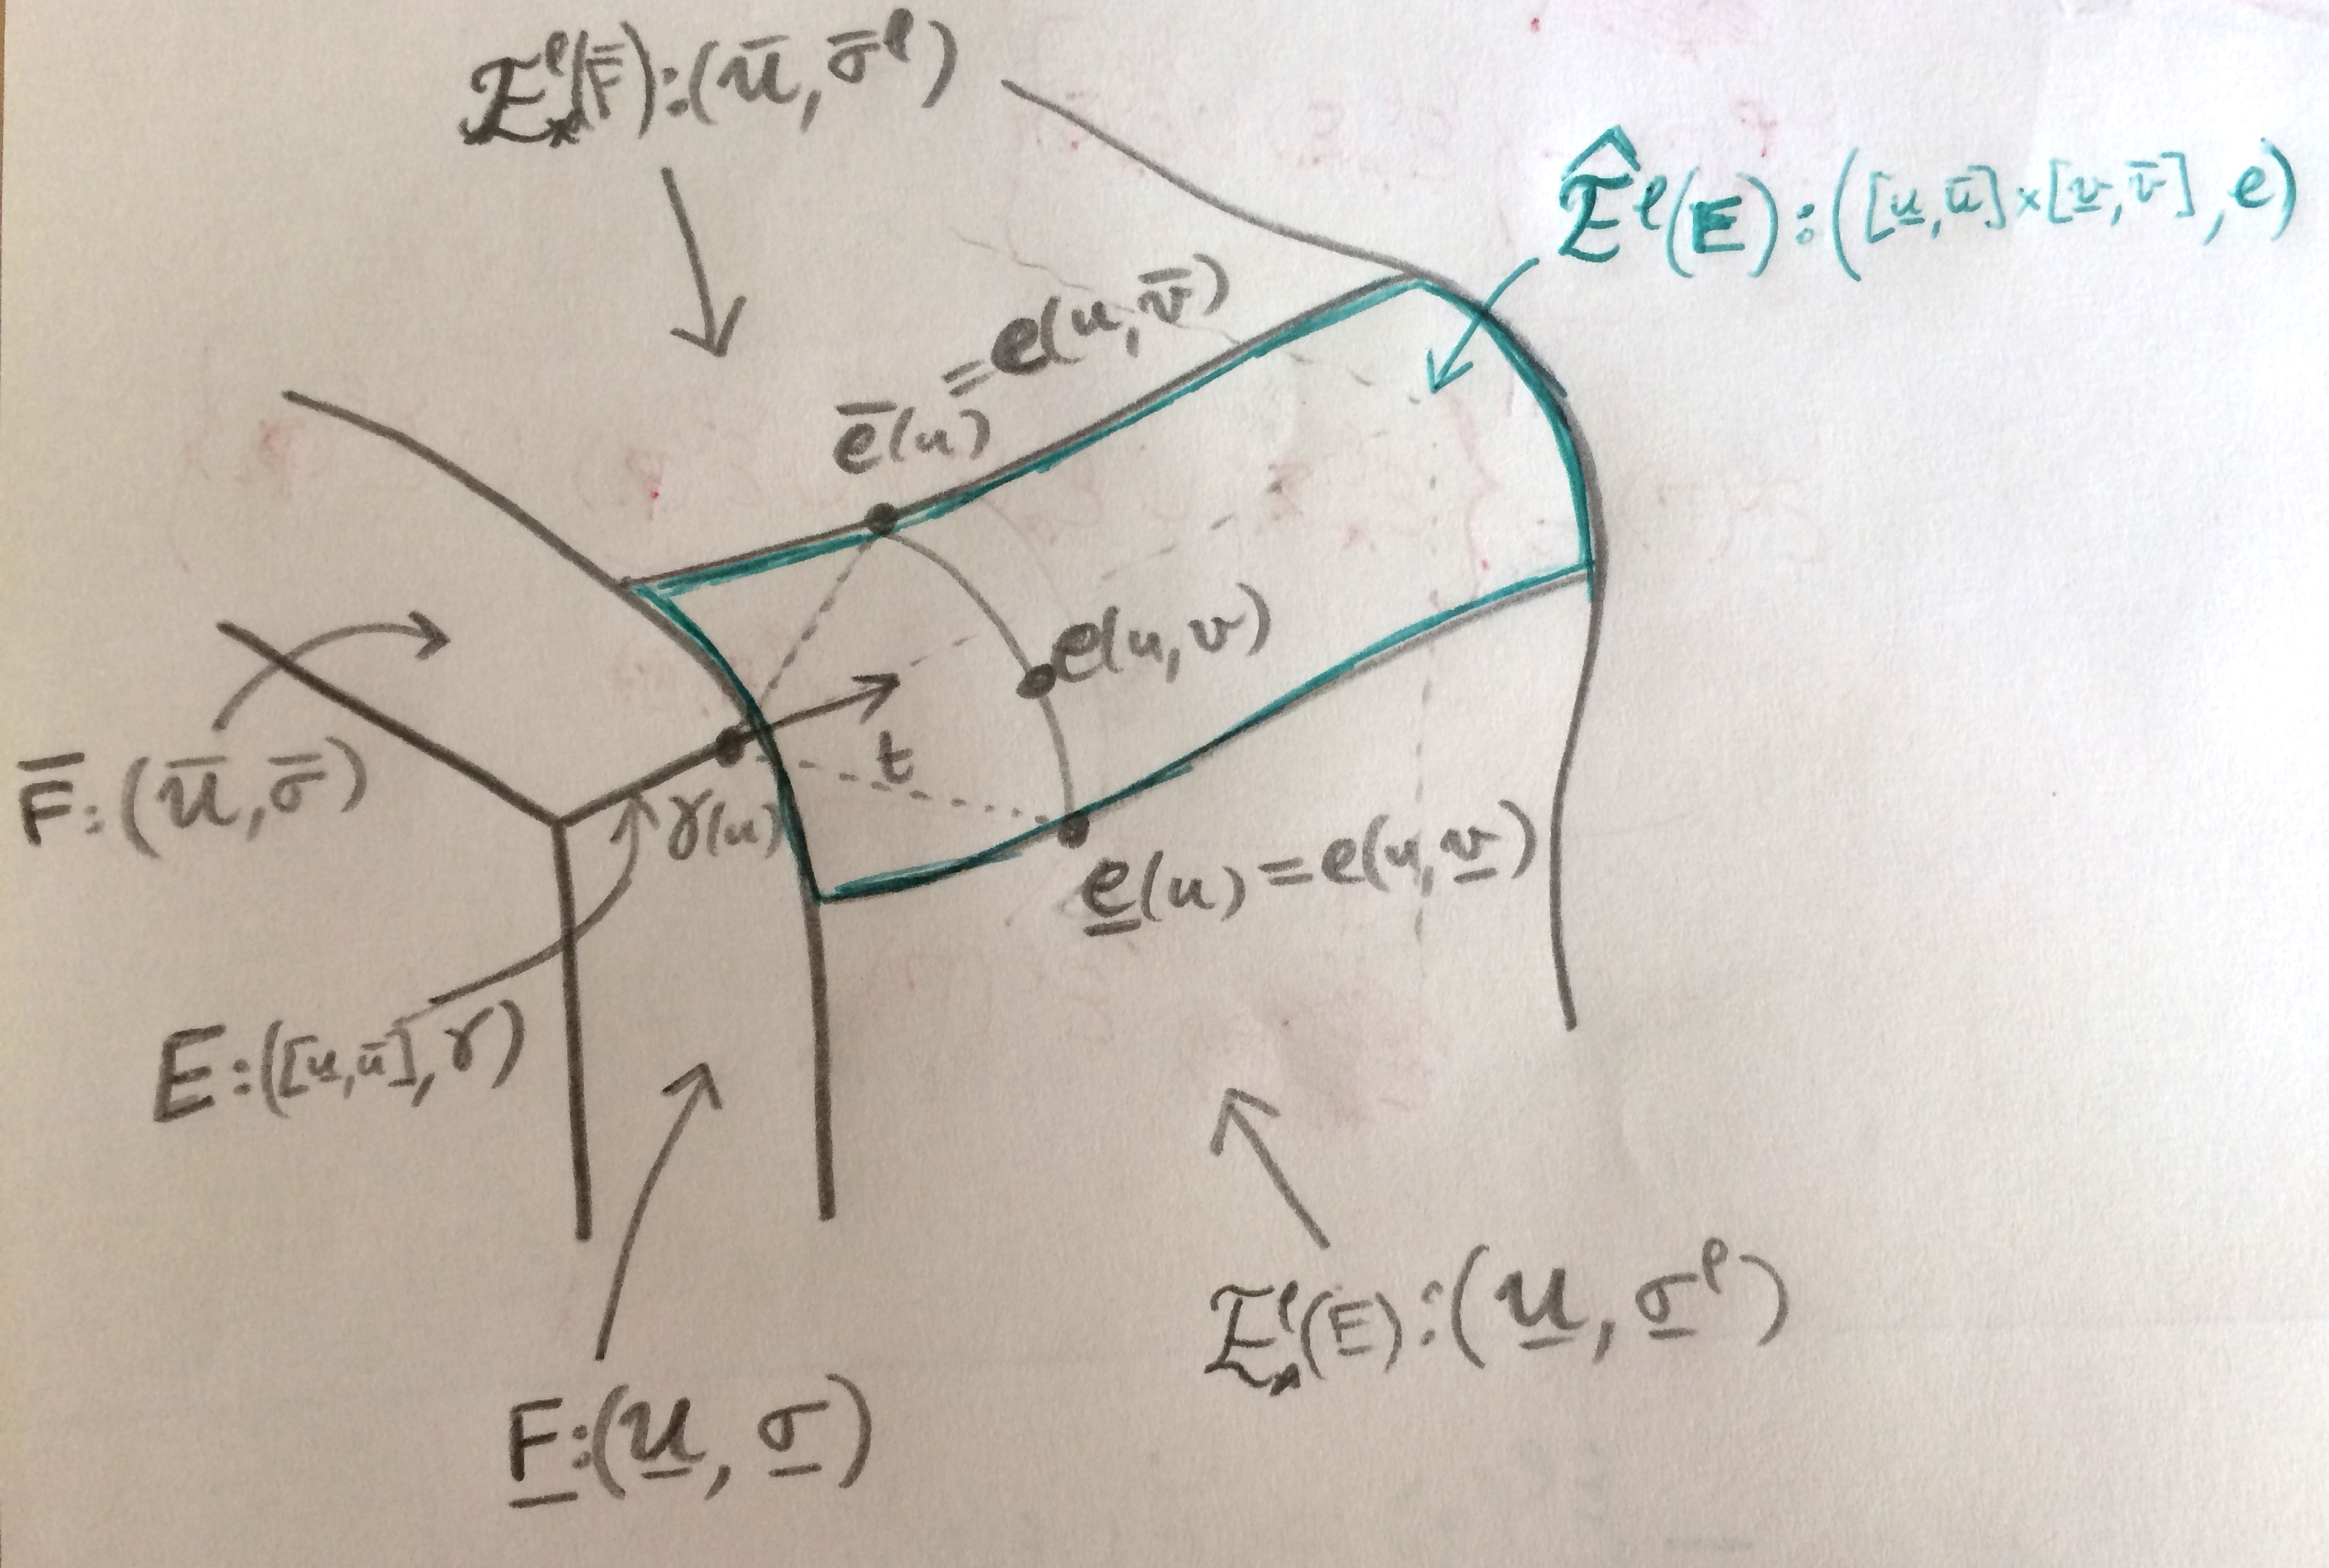 ℰ⁎ˡ(F̅):(𝒰̅, σ̅ˡ)
ℰ̂ˡ(E):([u̲,u̅]×[v̲,v̅], e)
e̅(u) = e(u,v̅)
e(u,v)
t
γ(u)
F̅:(𝒰̅,σ̅)
e̲(u) = e(u,v̲)
E:([u̲,u̅],γ)
ℰ⁎ˡ(F̲):(𝒰̲, σ̲ˡ)
F̲:(𝒰̲, σ̲)